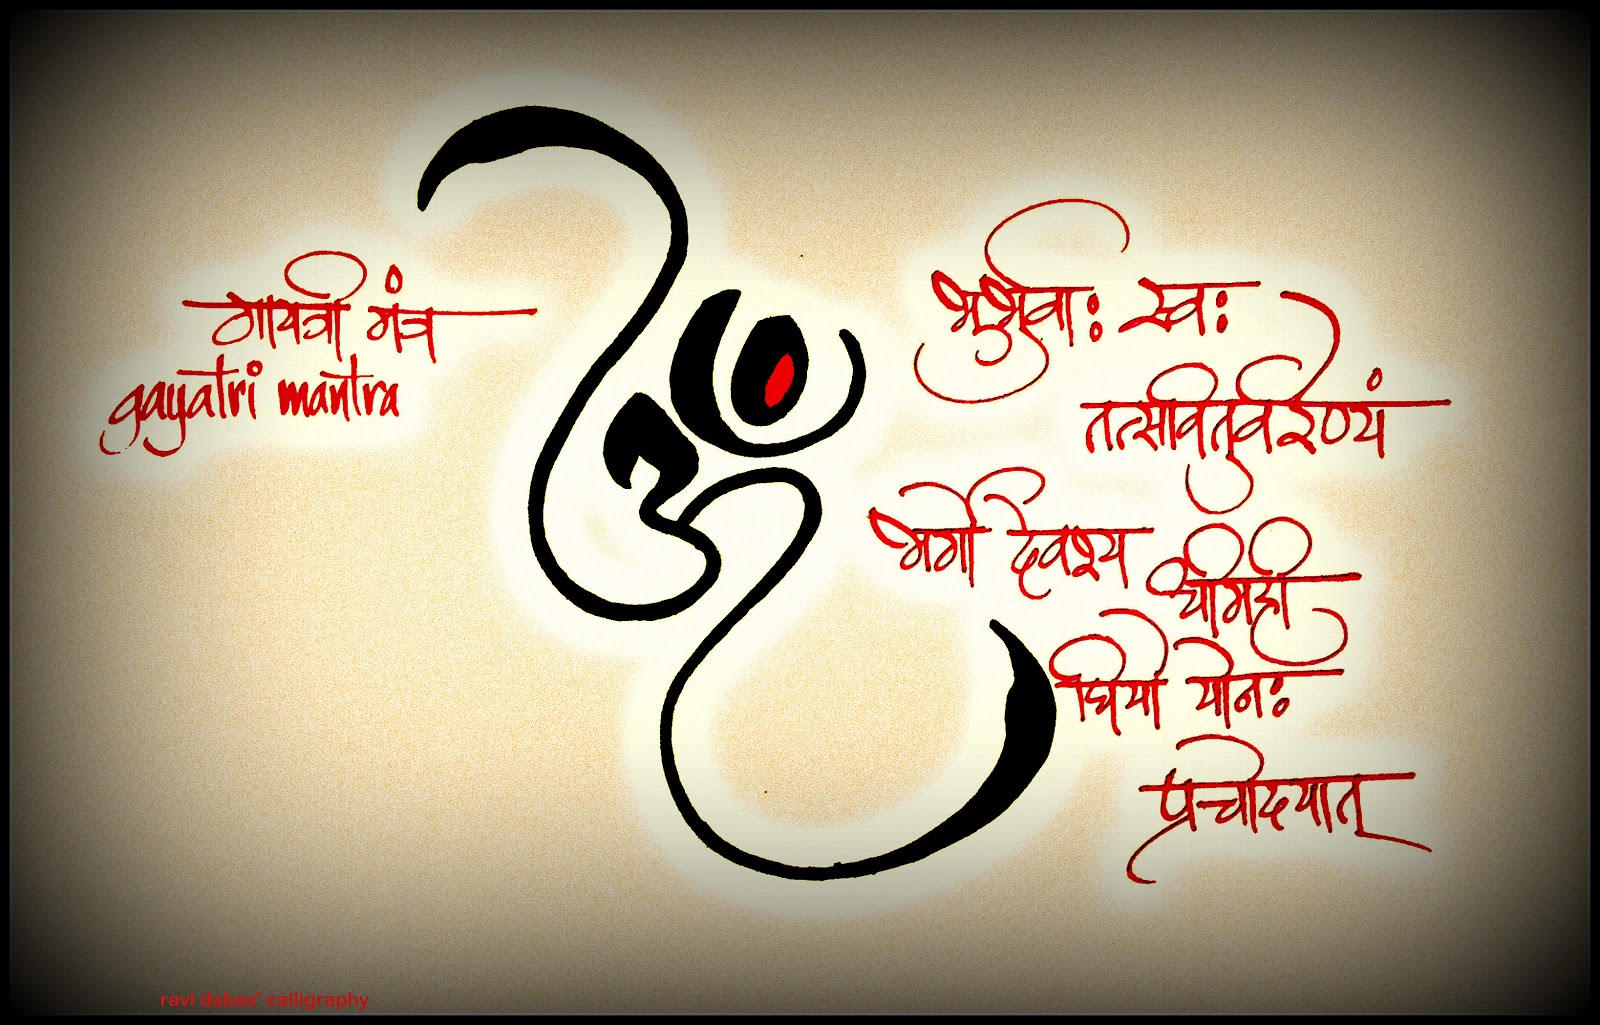 गायत्री मंत्र
gayatri mantra
ॐ
भुर्भुवा: स्व:
तत्सवितुर्वरेण्यं
भर्गो देवश्य
धीमही
धियो योन:
प्रचोदयात्
ravi dabas' calligraphy